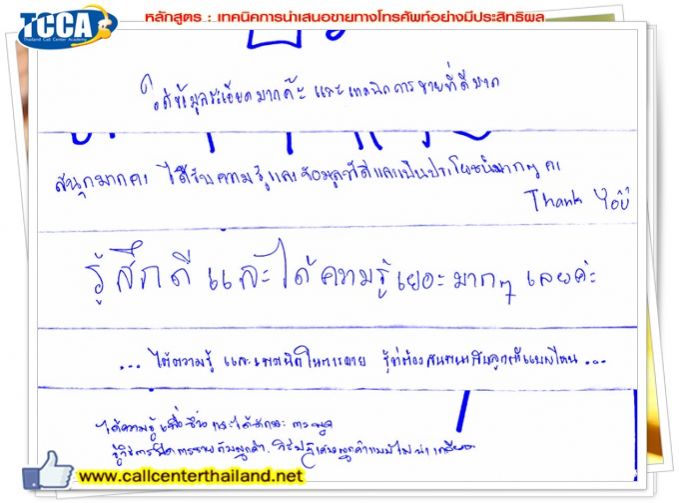 TCCA
Thailand Call Center Academy
หลักสูตร : เทคนิคการนำเสนอขายทางโทรศัพท์อย่างมีประสิทธิผล
ได้ข้อมูลละเอียดมากค่ะ และเทคนิคการขายที่ดีมาก
สนุกมากคะ ได้รับความรู้และข้อมูลที่ดีและเป็นประโยชน์มากๆ คะ
Thank You
รู้สึกดีและได้ความรู้เยอะมากๆ เลยค่ะ
... ได้ความรู้ และเทคนิคในการขาย รู้ว่าต้องสนทนากับลูกค้าแบบไหน ...
ได้ความรู้
รู้วิธีการปิดการขายกับลูกค้า.
www.callcenterthailand.net